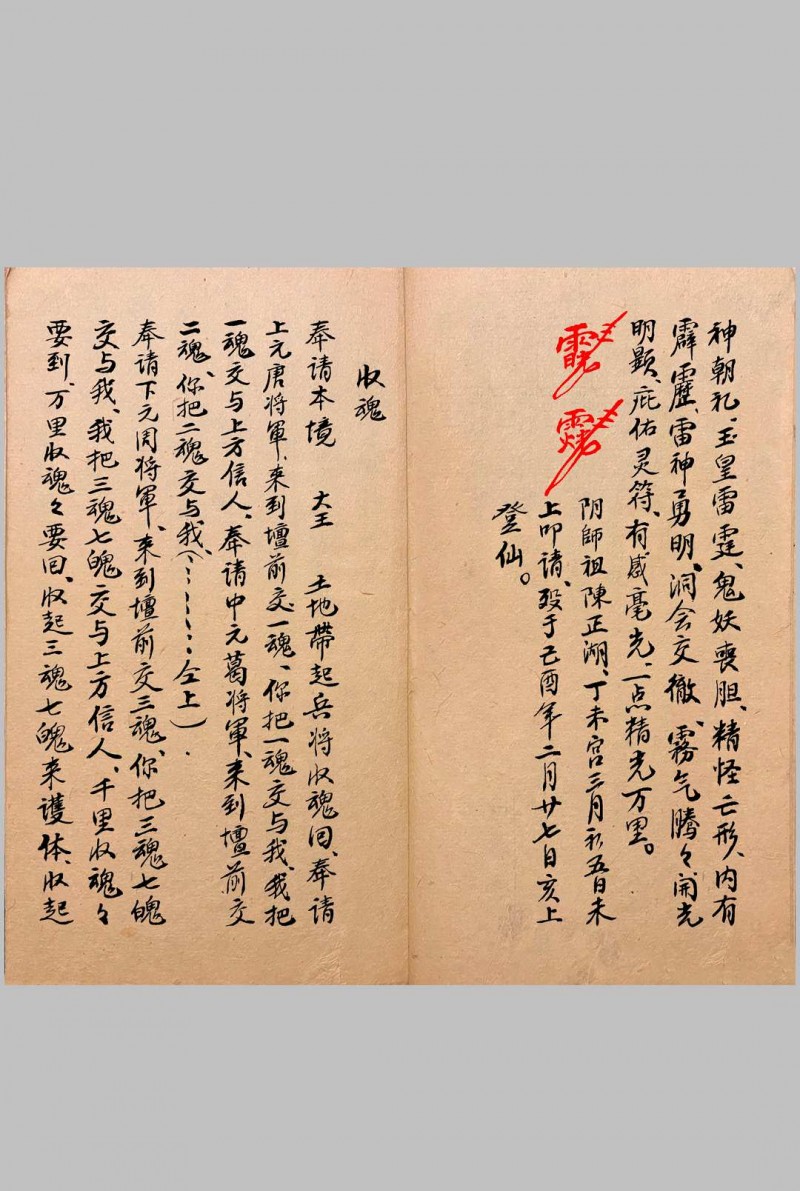 神朝礼、玉皇雷霆、鬼妖喪胆、精怪亡形、内有
霹靂、雷神勇明、洞会交徹、霧气騰々開光
明顕、庇佑灵符、有感毫光、一点精光万里。
阴師祖陳正湖、丁未宫三月初五日未
上叩請、殁于己酉年二月廿七日亥上
登仙。
收魂
奉请本境 大王 土地帶起兵将收魂回、奉请
上元唐将軍、来到壇前交一魂、你把一魂交与我、我把
一魂交与上方信人、奉请中元葛将軍、来到壇前交
二魂、你把二魂交与我、(⋯⋯⋯仝上).
奉请下元周将軍、来到壇前交三魂、你把三魂七魄
交与我、我把三魂七魄交与上方信人、千里收魂々
要到、万里收魂々要回、收起三魂七魄来護体、收起